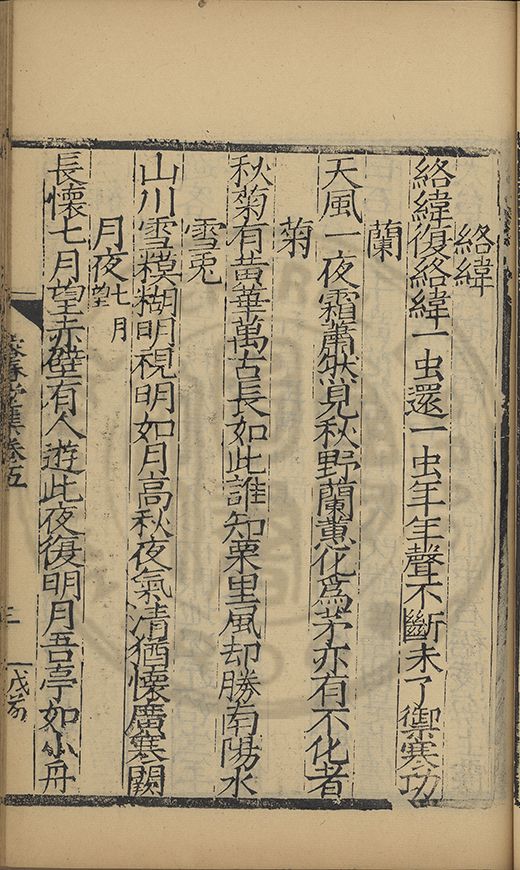 絡緯
絡緯復絡緯一虫還一虫年年聲不斷未了禦寒功
蘭
天風一夜霜蕭然見秋野蘭蕙化爲茅亦有不化者
菊
秋菊有黃華萬古長如此誰知栗里風却勝南陽水
雪兎
山川雪糢糊明視明如月高秋夜氣清猶懷廣寒闕
月夜七月望
長懷七月望赤壁有人遊此夜復明月吾亭如小舟
春堂集卷五
三